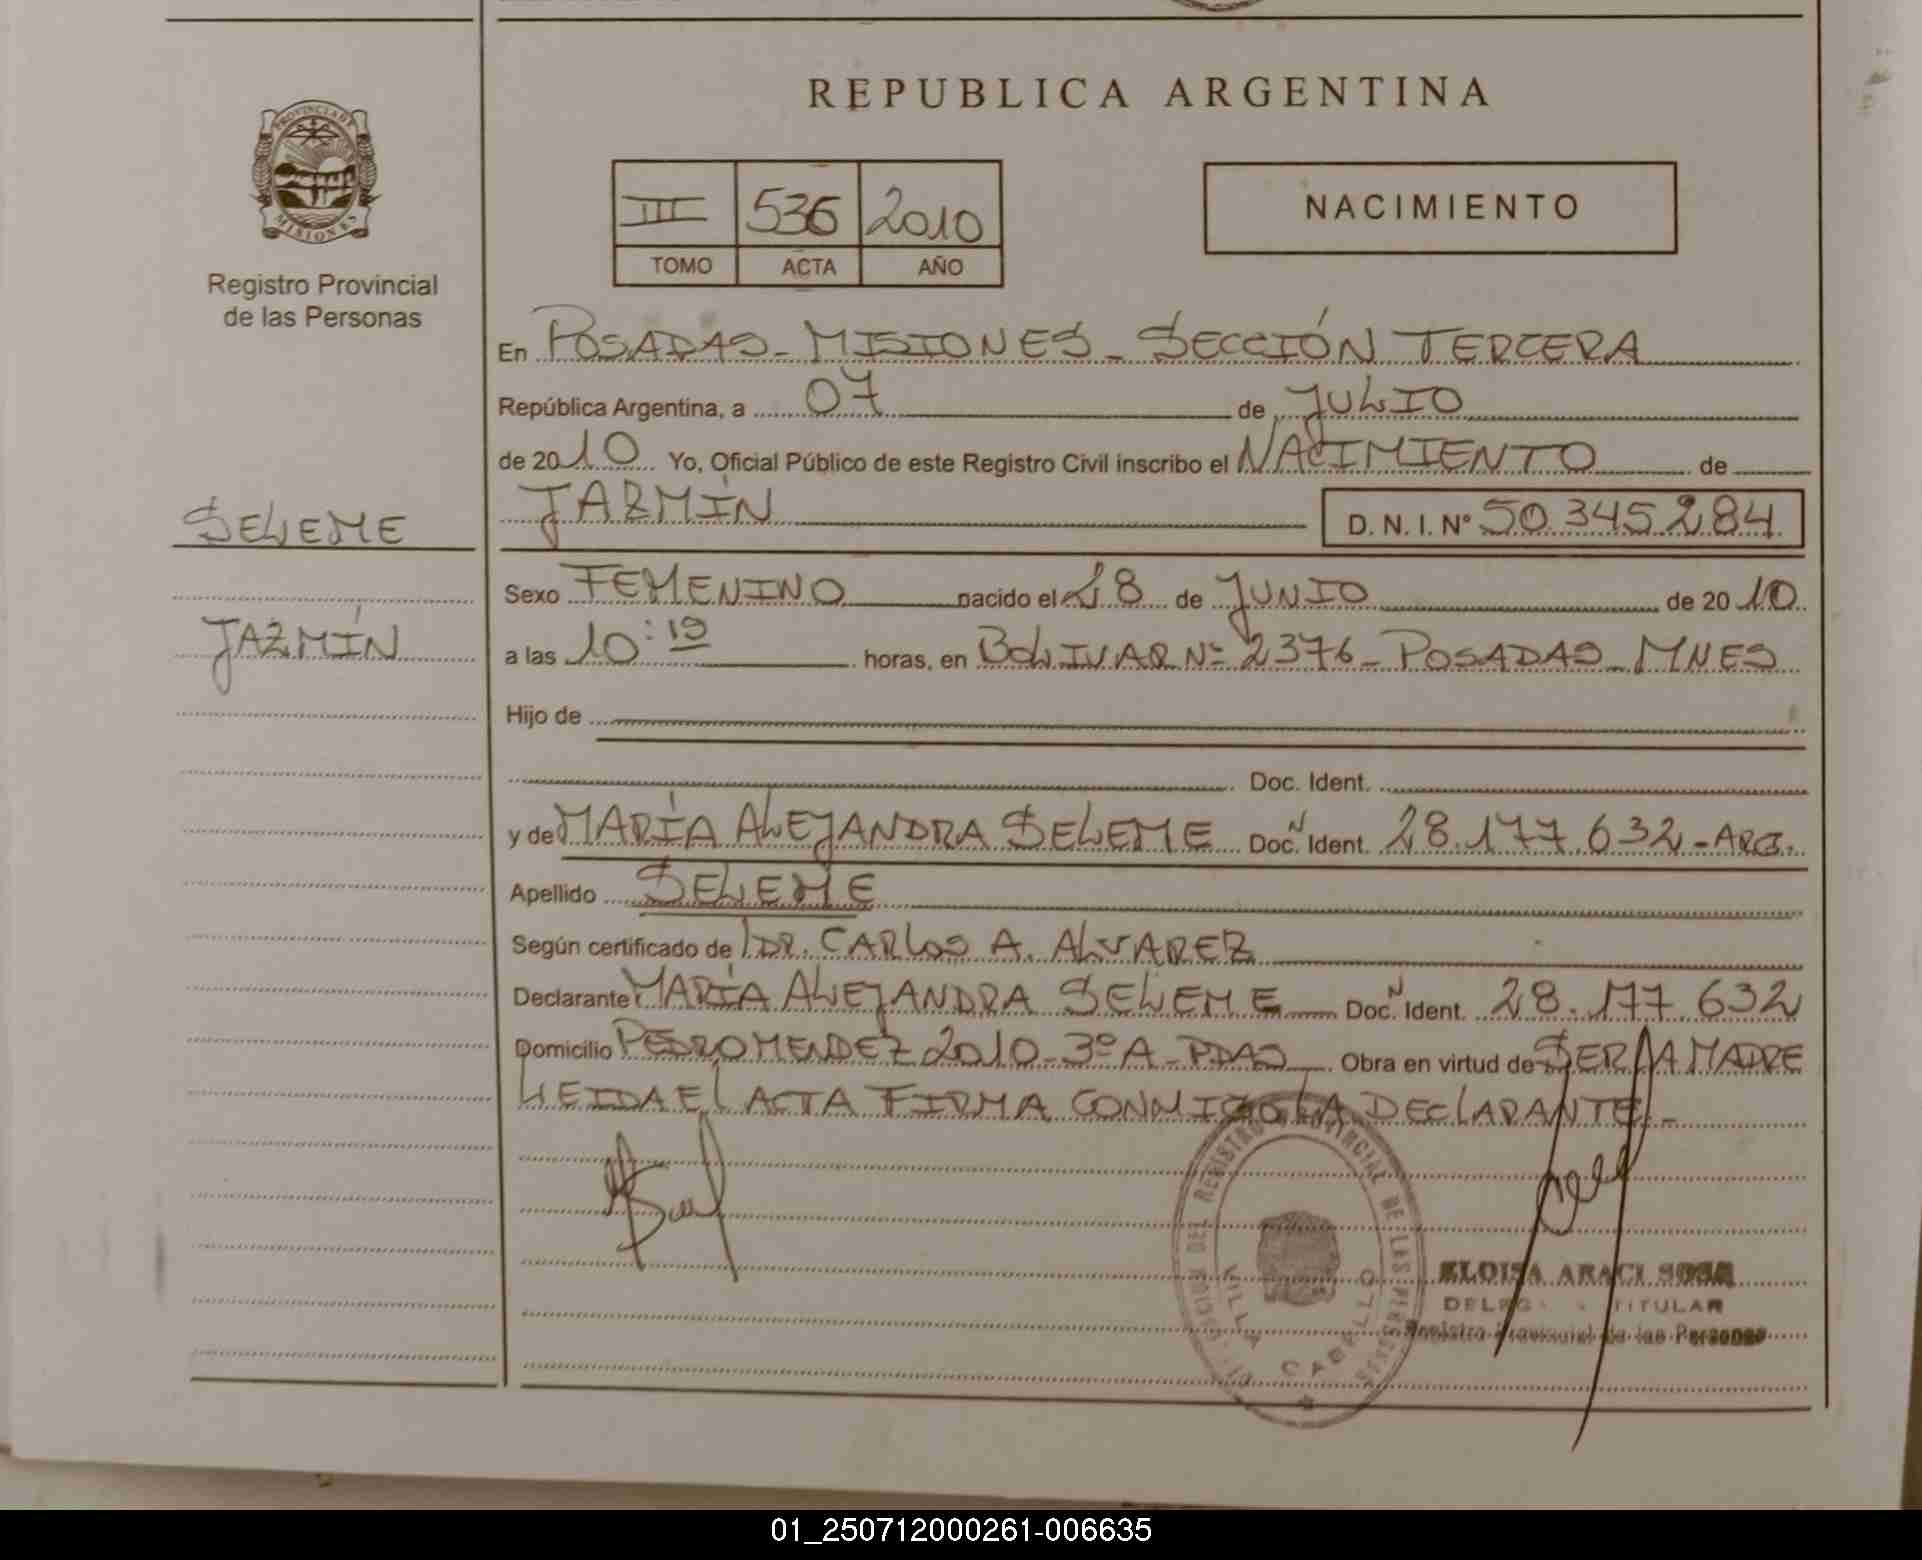 PROVINCIA DE
MISIONES
Registro Provincial
de las Personas
SELEME
JAZMÍN
REPUBLICA ARGENTINA
III 536 2010
TOMO ACTA AÑO
NACIMIENTO
En POSADAS - MISIONES - SECCIÓN TERCERA
República Argentina, a 07 de JULIO
de 2010 Yo, Oficial Público de este Registro Civil inscribo el NACIMIENTO de
JAZMÍN D.N.I. Nº 50.345.284
Sexo FEMENINO nacido el 18 de JUNIO de 2010
a las 10:19 horas, en BOLIVAR Nº 2376 - POSADAS - MNES
Hijo de
Doc. Ident.
y de MARÍA ALEJANDRA SELEME Doc. N Ident. 28.177.632 - ARG.
Apellido SELEME
Según certificado de DR. CARLOS A. ALVAREZ
Declarante MARÍA ALEJANDRA SELEME Doc. N Ident. 28.177.632
Domicilio PEDRO MENDEZ 2010 - 3º A - PDAS Obra en virtud de SER LA MADRE
LEIDA EL ACTA FIRMA CONMIGO LA DECLARANTE.-
DEL REGISTRO PROVINCIAL DE LAS PERSONAS
VILLA CABELLO
ELOISA ARACI SOSA
TITULAR
Registro Provincial de las Personas
01_250712000261-006635